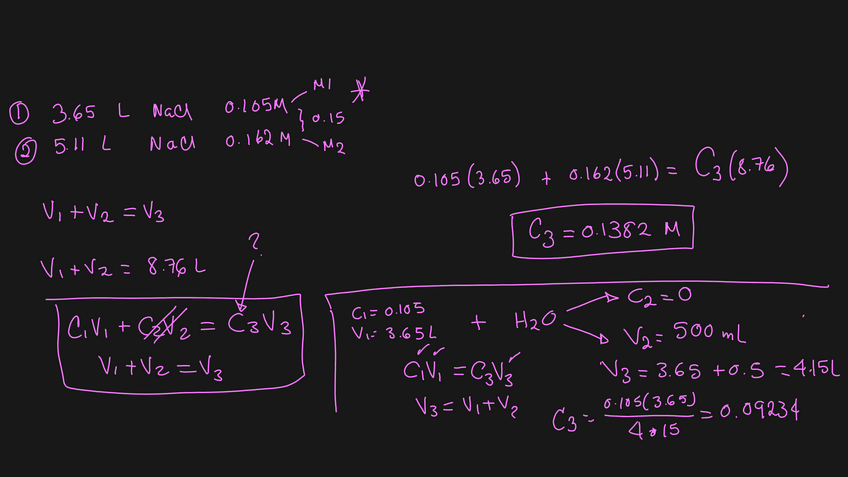 ① 3.65 L NaCl 0.105M M1 *
} 0.15
② 5.11 L NaCl 0.162 M M2
0.105(3.65) + 0.162(5.11) = C3(8.76)
V1+V2 = V3
C3 = 0.1382 M
V1+V2 = 8.76 L
?
C1V1 + C2V2 = C3V3
V1+V2 = V3
C1= 0.105
V1= 3.65 L
+ H2O
C2=0
V2= 500 mL
C1V1 = C3V3
V3 = V1+V2
V3 = 3.65 +0.5 = 4.15L
C3 = 0.105(3.65) / 4.15 = 0.09234